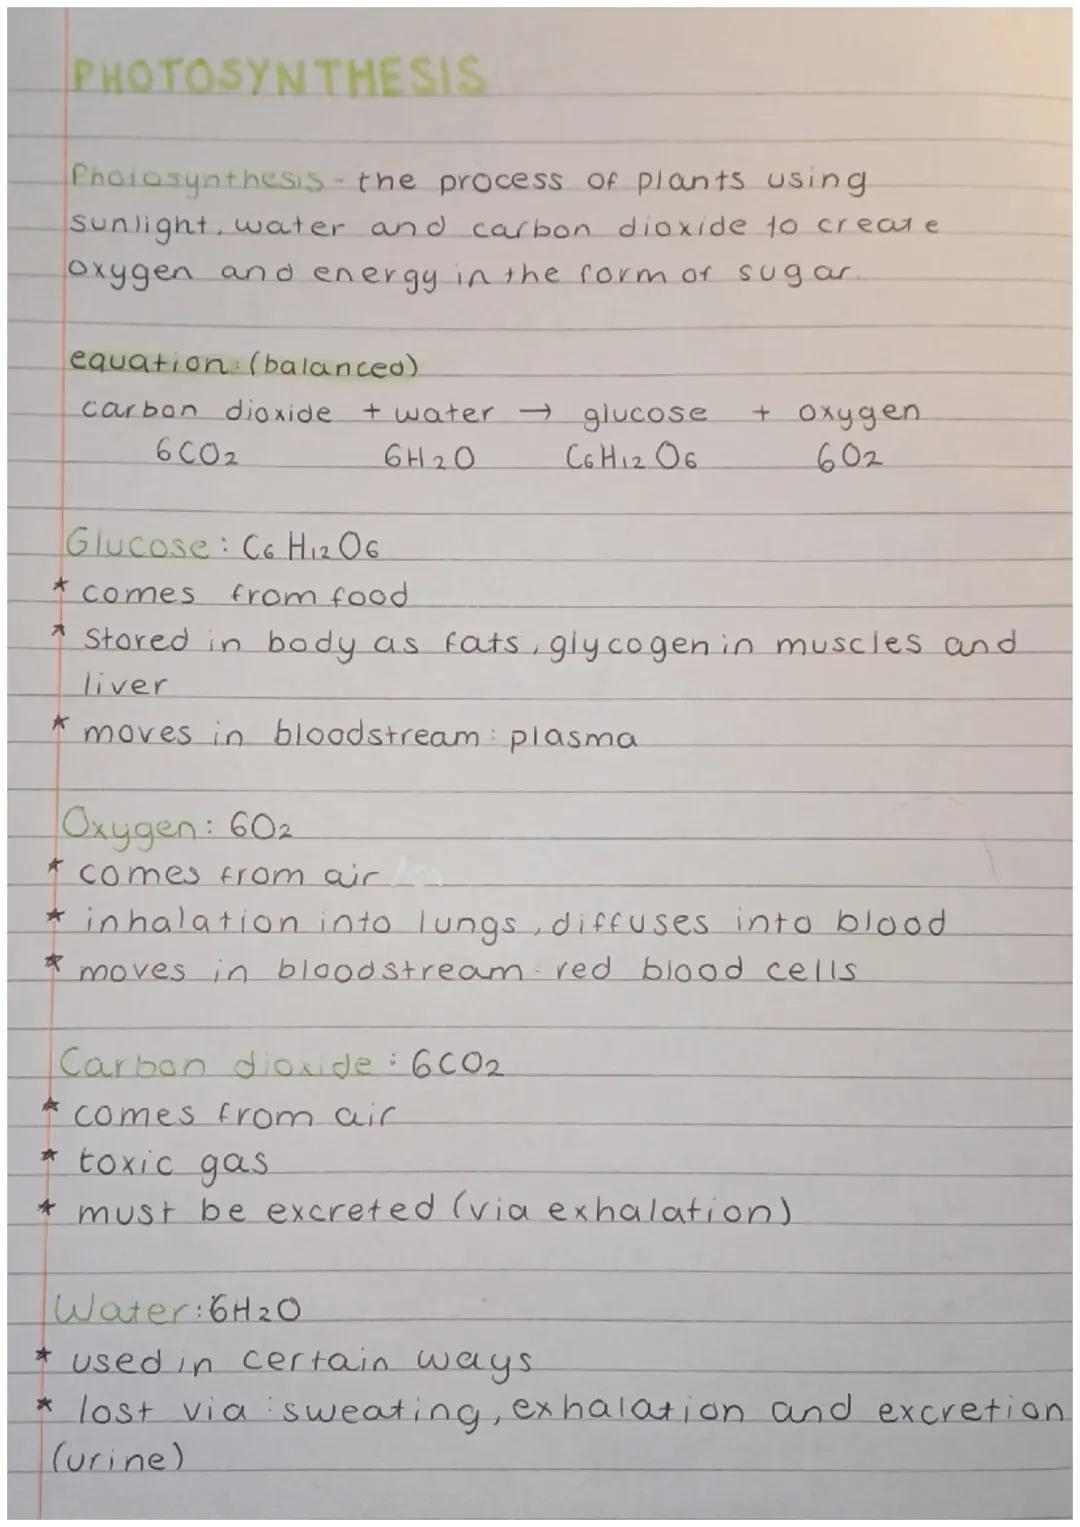 PHOTOSYNTHESIS
Photosynthesis - the process of plants using
sunlight, water and carbon dioxide to create
oxygen and energy in the form of sugar.
equation: (balanced)
carbon dioxide + water → glucose + oxygen
6CO2 6H2O C6H12O6 6O2
Glucose: C6H12O6
* comes from food
* Stored in body as fats, glycogen in muscles and
liver
* moves in bloodstream: plasma
Oxygen: 6O2
* comes from air
* inhalation into lungs, diffuses into blood
* moves in bloodstream: red blood cells
Carbon dioxide: 6CO2
* comes from air
* toxic gas
* must be excreted (via exhalation)
Water: 6H2O
* used in certain ways
* lost via: sweating, exhalation and excretion
(urine)